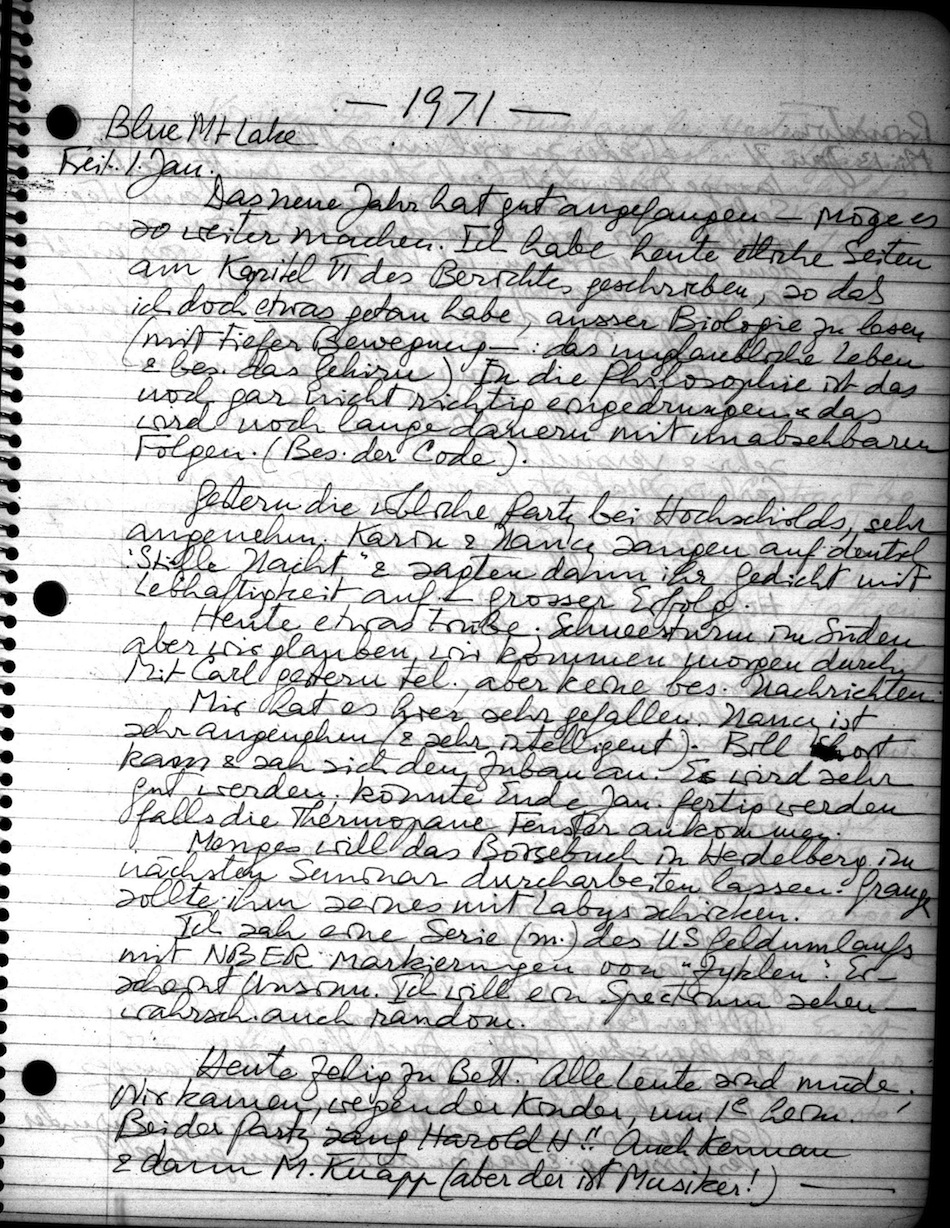 — 1971 —
Blue Mt Lake
Freit. 1. Jan.
Das neue Jahr hat gut angefangen — möge es
so weiter machen. Ich habe heute etliche Seiten
am Kapitel VI des Berichtes geschrieben, so das
ich doch etwas getan habe, ausser Biologie zu lesen
(mit tiefer Bewegung — : das unglaubliche Leben
& bes. das Gehirn) In die Philosophie ist das
noch gar nicht richtig eingedrungen & das
wird noch lange dauern mit unabsehbaren
Folgen. (Bes. der Code).
Gestern die übliche Party bei Hochschilds, sehr
angenehm. Karin & Nancy sangen auf deutsch
"Stille Nacht" & sagten dann ihr Gedicht mit
Lebhaftigkeit auf — grosser Erfolg.
Heute etwas trübe. Schneesturm im Süden
aber wir glauben wir kommen morgen durch.
Mit Carl gestern tel., aber keine bes. Nachrichten.
Mir hat es hier sehr gefallen. Nancy ist
sehr angenehm (& sehr intelligent). Bill
kam & sah sich den Zubau an. Es wird sehr
gut werden, könnte Ende Jan. fertig werden
falls die Thermopane Fenster ankommen.
Menges will das Börsebuch in Heidelberg im
nächsten Seminar durcharbeiten lassen. Grange
sollte ihm seines mit Labys schicken.
Ich sah eine Serie (m.) des US Geldumlaufs
mit NBER Markierungen von "Zyklen". Er-
scheint Unsinn. Ich will ein Spectrum sehen —
wahrsch. auch random.
Heute zeitig zu Bett. Alle Leute sind müde,
Wir kamen, wegen der Kinder, um 1ʰ heim.
Bei der Party sang Harold H!! Auch Kennan
& dann M. Knapp (aber der ist Musiker!) —